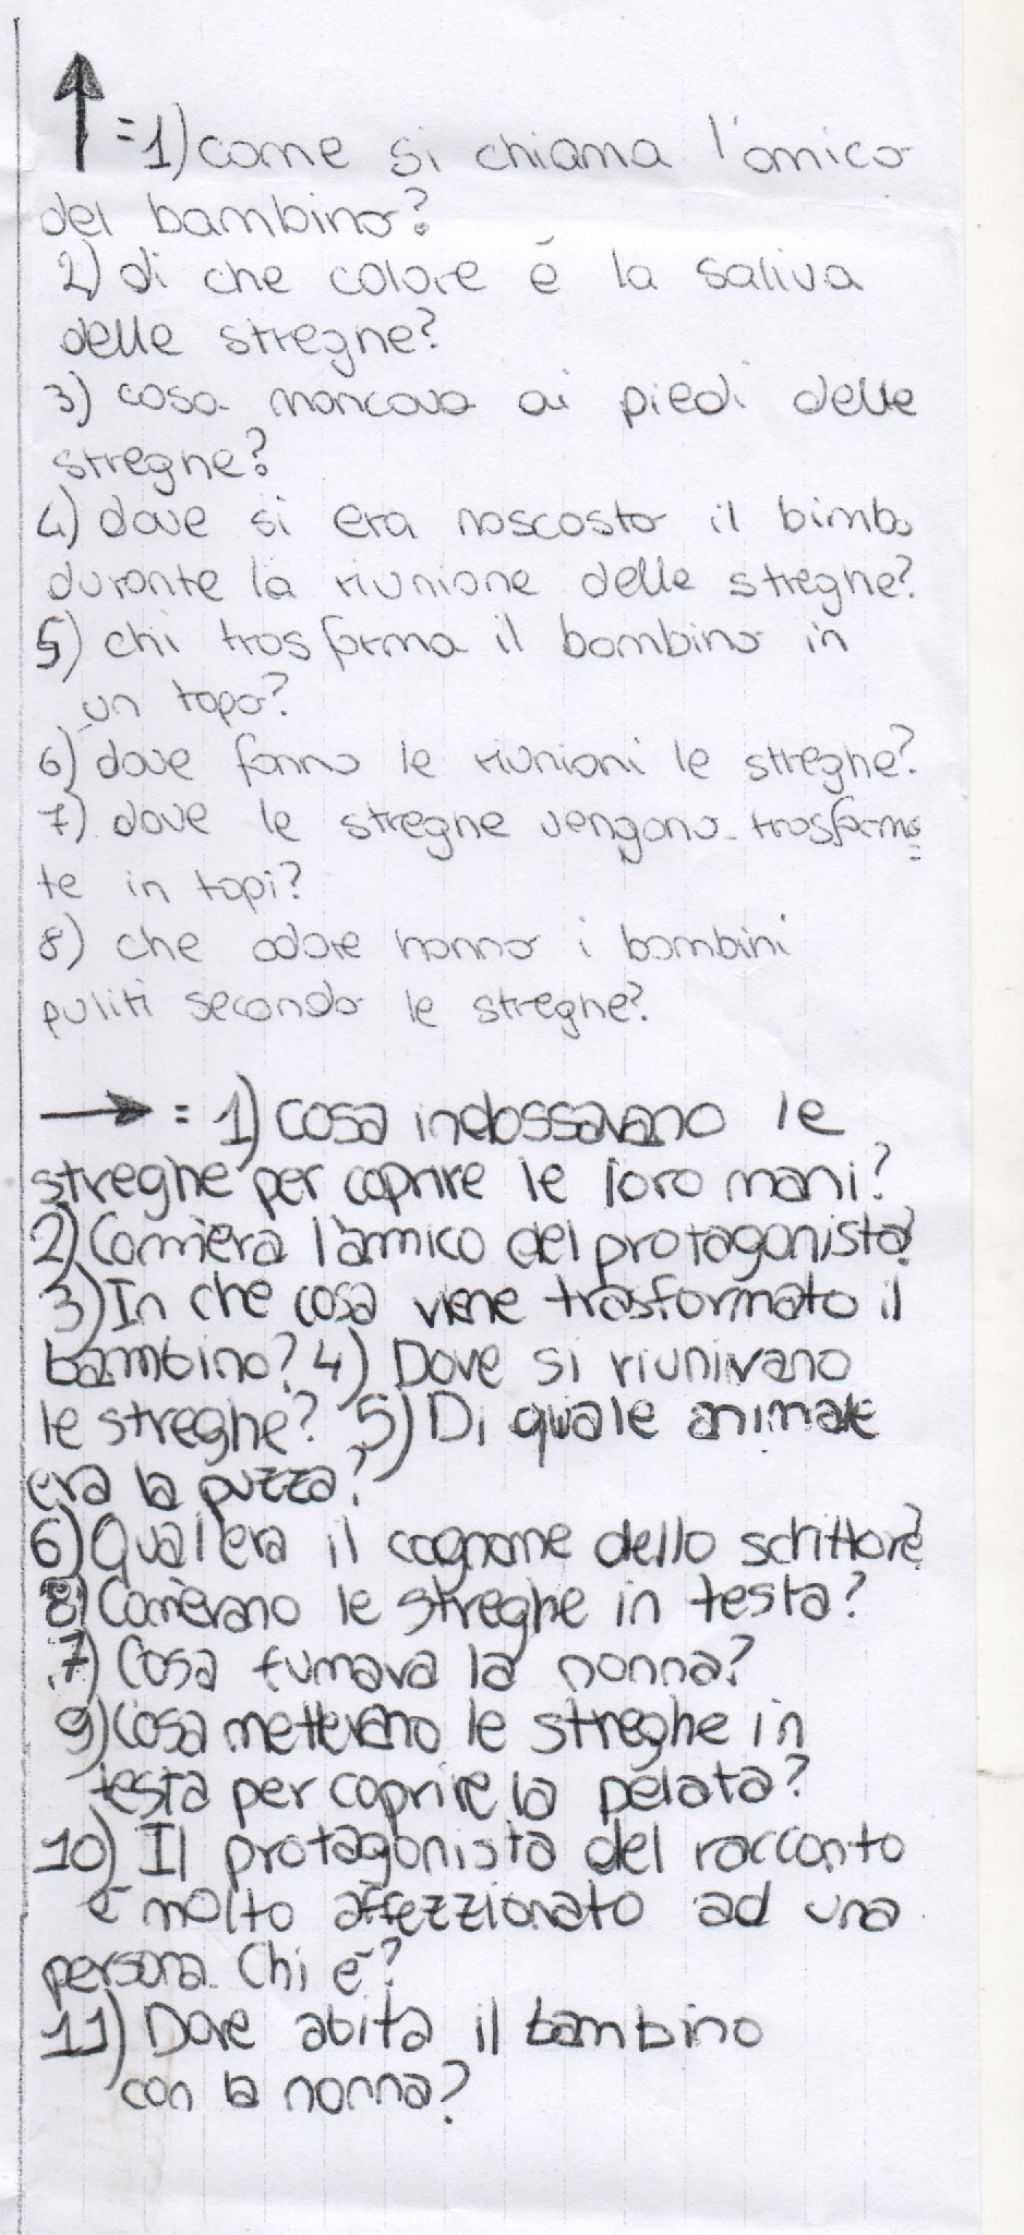 ↑ = 1) come si chiama l'amico
del bambino?
2) di che colore é la saliva
delle streghe?
3) cosa mancava ai piedi delle
streghe?
4) dove si era nascosto il bimbo
durante la riunione delle streghe?
5) chi trasforma il bambino in
un topo?
6) dove fanno le riunioni le streghe?
7) dove le streghe vengono trasforma=
te in topi?
8) che odore hanno i bambini
puliti secondo le streghe?
→ = 1) Cosa indossavano le
streghe per coprire le loro mani?
2) Com'era l'amico del protagonista?
3) In che cosa viene trasformato il
bambino? 4) Dove si riunivano
le streghe? 5) Di quale animale
era la puzza?
6) Qual'era il cognome dello scrittore?
8) Com'erano le streghe in testa?
7) Cosa fumava la nonna?
9) Cosa mettevano le streghe in
testa per coprire la pelata?
10) Il protagonista del racconto
è molto affezzionato ad una
persona. Chi è?
11) Dove abita il bambino
con la nonna?